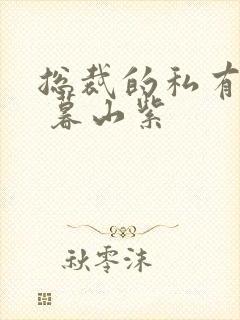 总裁的私有
暮山紫
秋零沫